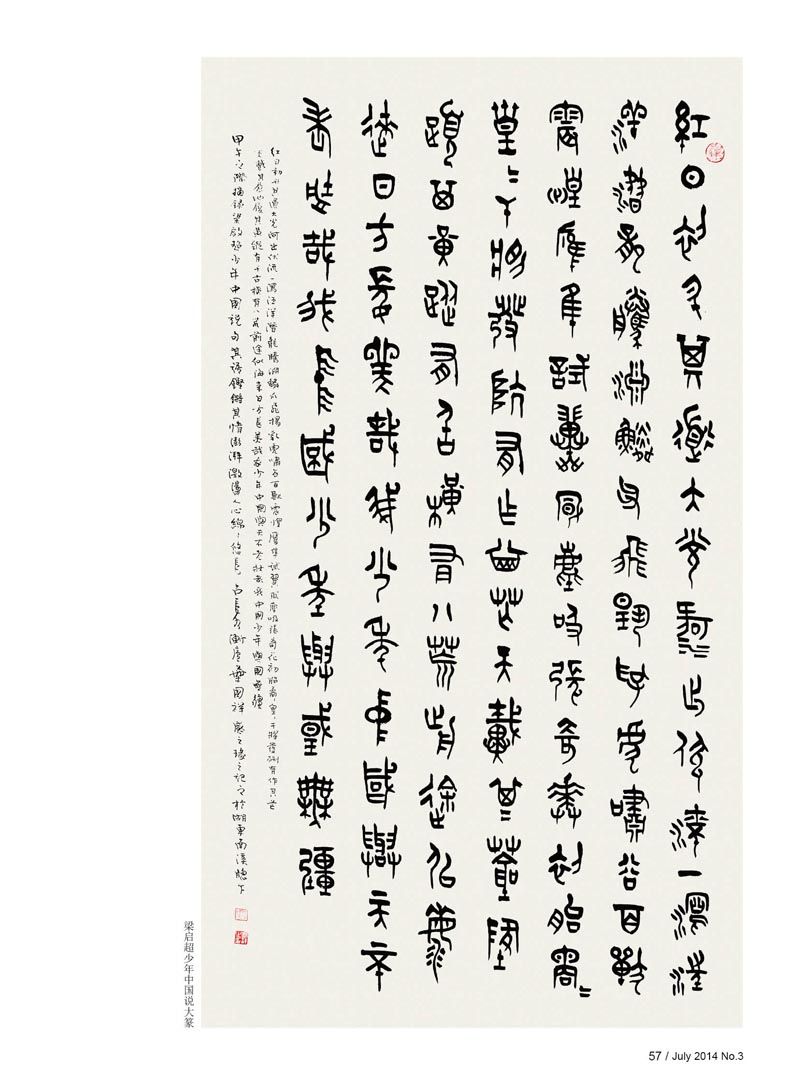 紅日初升其道大光河出伏流一瀉汪
洋潛龍騰淵鱗爪飛揚乳虎嘯谷百獸
震惶鷹隼試翼風塵吸張奇花初胎矞〻
皇〻干將發硎有作其芒天戴其蒼地
履其黃縱有千古橫有八荒前途似海
來日方長美哉我少年中國與天不
老壯哉我中國少年與國無疆
紅日初升其道大光河出伏流一瀉汪洋潛龍騰淵鱗爪飛揚乳虎嘯谷百獸震惶鷹隼試翼風塵吸張奇花初胎矞〻皇〻干將發硎有作其芒
天戴其蒼地履其黃縱有千古橫有八荒前途似海來日方長美哉我少年中國與天不老壯哉我中國少年與國無疆
甲午之際摘錄梁啟超少年中國說句其語鏗鏘其情澎湃激盪人心 國祥 記之於湖東南溪
梁启超少年中国说大篆
57 / July 2014 No.3